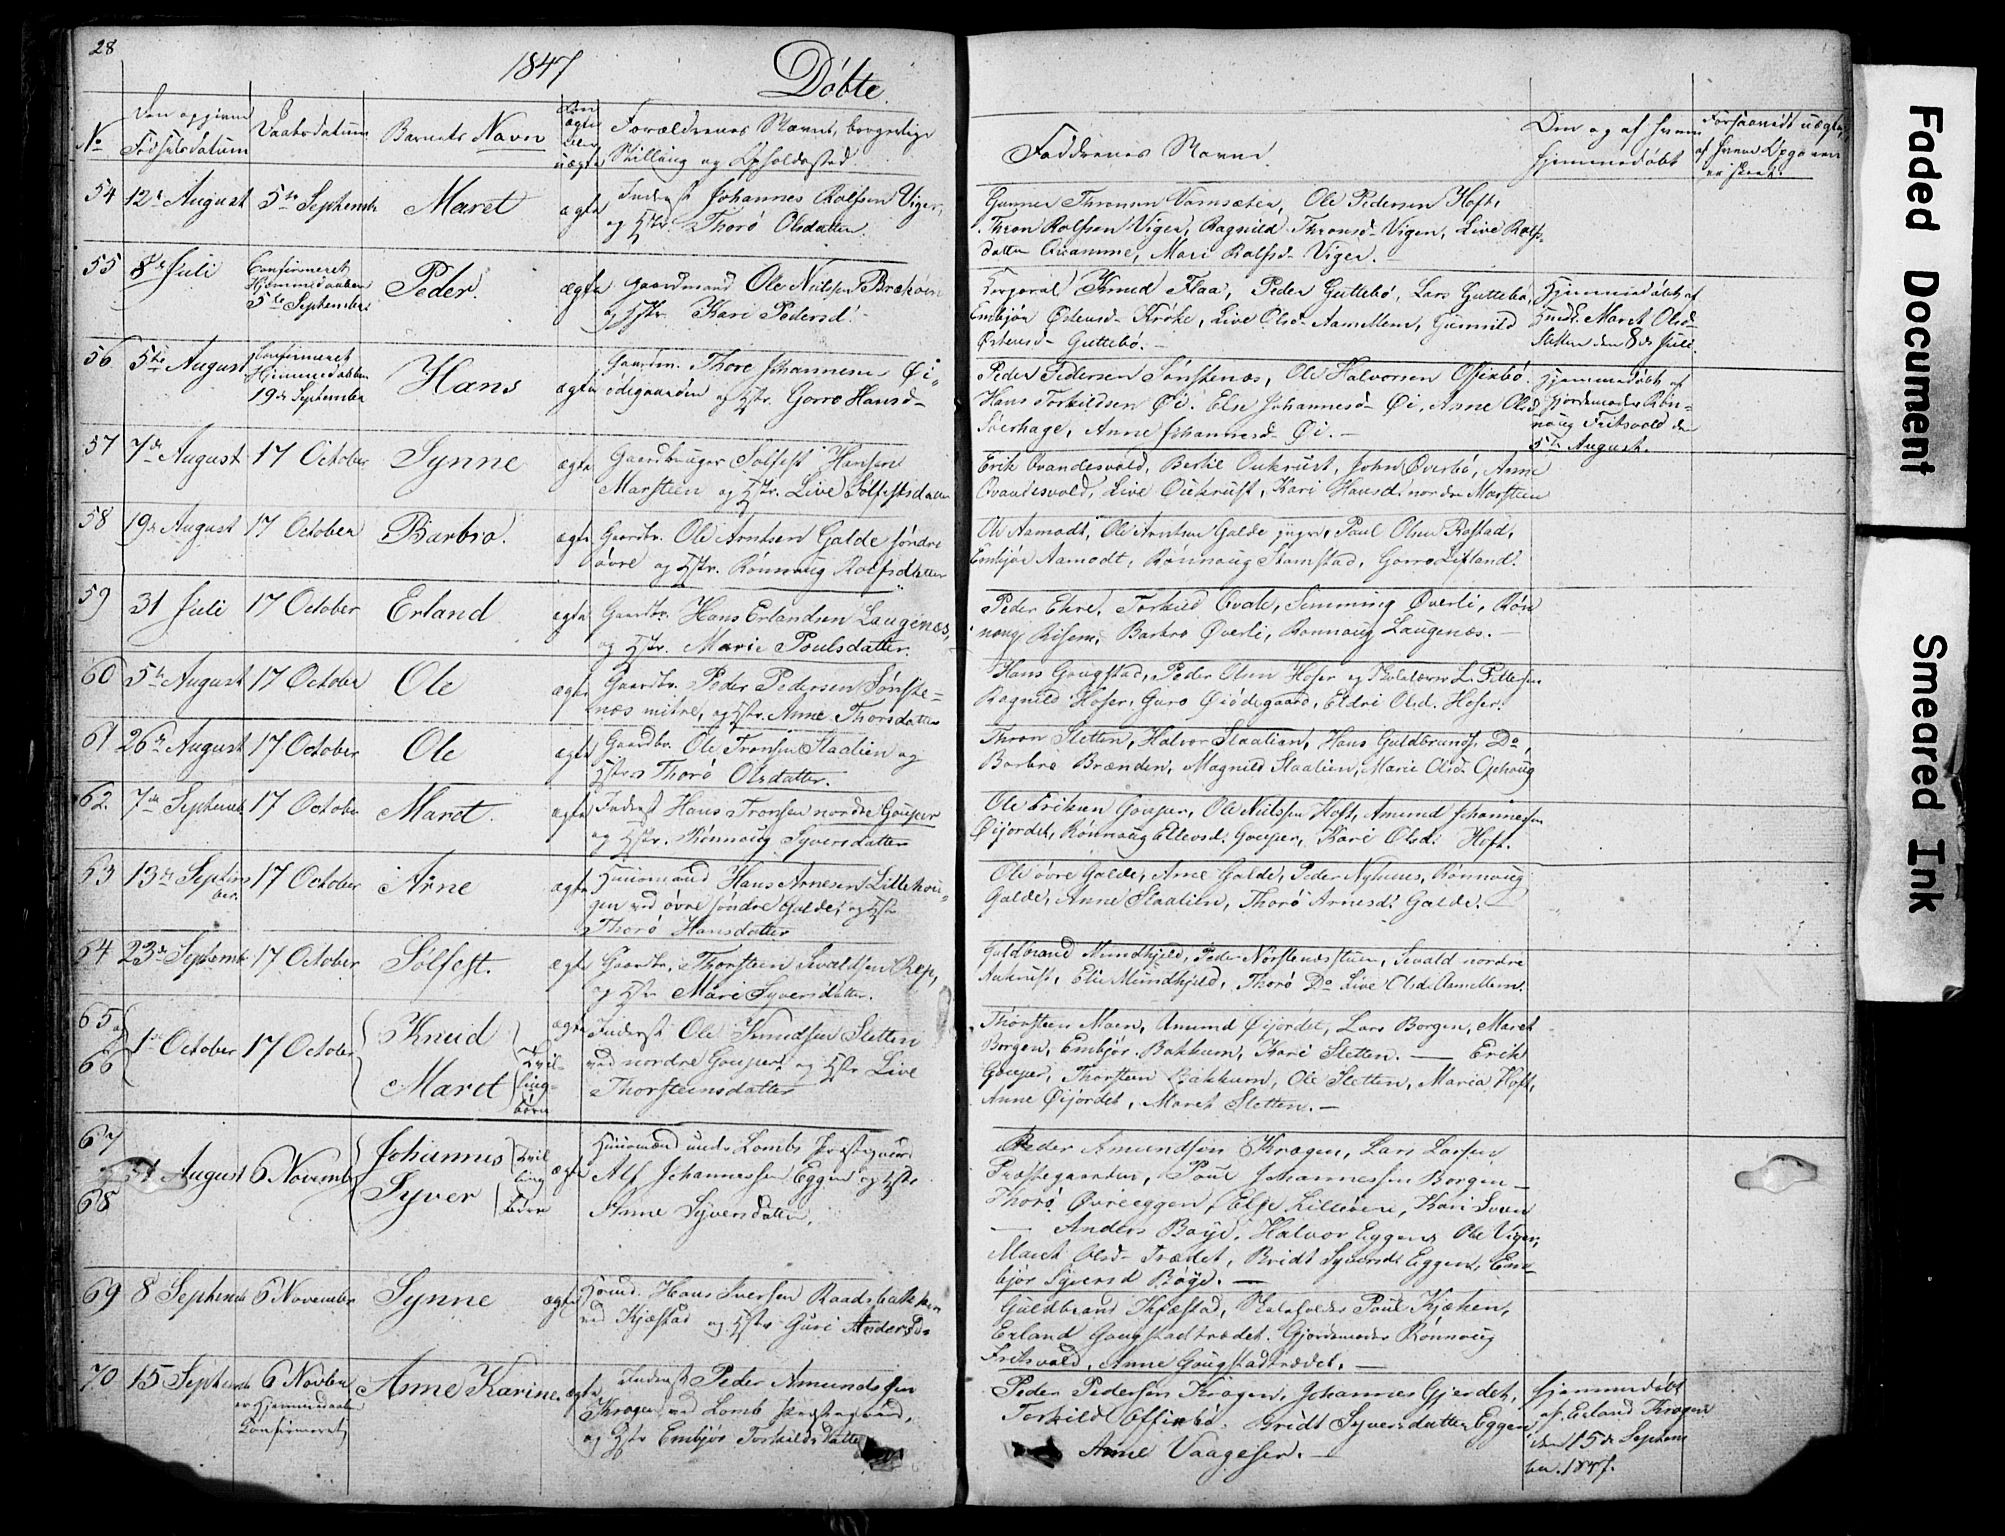 28
1847
Døbte.
No
Den opgivne Fødselsdatum
Daabsdatum
Barnets Navn
om ægte eller uægte
Forældrenes Navne, borgerlige Stilling og Opholdssted
Faddrenes Navne
Om og af hvem hjemmedøbt
54 12te August 5te Septemb Maret ægte Inderst Johannes Rolfsen Viger,
og Hstr. Thorø Olsdatter.
Ole Pedersen Hoft,
Thron Rolfsen Viger, Ragnild Thronsd- Vigen, Live Rolfs-
datter Mari Rolfsd- Viger. -
55 8de Juli Confirmeret Hjemmedaaben 5te September Peder. ægte Gaardmand Ole Nilsen
og Hstr. Kari Pedersd.
Korporal Knud Flaa, Peder Guttebø, Lars Guttebø,
Embjør Østensd- Kroke, Live Olsd- Aamellem, Gunnild
Østensd- Guttebø. -
Hjemmedøbt af
Maret Olsd-
Sletten den 8de Juli.
56 5te August Confirmeret Hjemmedaaben 19de September Hans ægte Gaardm. Thore Johannesen Øi-
ødegaarden og Hstr. Gorro Hansd-
Peder Pedersen Sønstenæs, Ole Halvorsen Offixbø
Hans Torkildsen Øi. Else Johannesd- Øi, Anne Olsd
Anne Johannesd- Øi. -
Hjemmedøbt af
Gjordemoder Røn-
naug Fritsvold den
5te August.
57 7de August 17 October Synne ægte Gaardbruger Solfest Hansen
Marstein og Hstr. Live Solfestsdatter
Erik Qvandesvold, Bertil Oukrust, John Øverbø, Anne
Qvandesvold, Live Oukrust, Kari Hansd. nordre Marstein
58 19de August 17 October Barbro. ægte Gaardbr. Ole Arntsen Galde søndre
øvre og Hstr. Rønnoug Rolfsdatter
Ole Aamodt, Ole Arntsen Galde yngre, Paul Olsen Rostad,
Embjør Aamodt, Rønnoug Stamstad, Gorro
59 31 Juli 17 October Erland ægte Gaardbr. Hans Erlandsen Laugenæs,
og Hstr. Marie Poulsdatter.
Peder Ekre, Torkild Qvale, Simming Øverli, Røn
noug Risem, Barbro Øverli, Rønnoug Laugenæs. -
60 5te August 17 October Ole ægte Gaardbr. Peder Pedersen Sønste-
næs mitre, og Hstr. Anne Thorsdatter
Hans Gougstad, Peder Olsen Hoser og Skolelærer L. Pettersen
Ragnild Hoser, Guro Øiødegaard, Eldri Olsd. Hoser.
61 26de August 17 October Ole ægte Gaardbr. Ole Tronsen Staalien og
Hstr Thorø Olsdatter.
Thron Sletten, Halvor Staalien, Hans Guldbrands. Do,
Barbro Brænden, Magnild Staalien, Marie Olsd.
62. 7de Septemb 17 October Maret. ægte Inderst Hans Tronsen nordre Gouper
og Hstr. Rønnoug Syversdatter
Ole Eriksen Gouper, Ole Nilssen Hoft, Amund Johannessen
Øijordet, Rønnoug Ellevsd. Gouper, Kari Olsd. Hoft.
63 13de Septem ber. 17 October Arne ægte Huusmand Hans Arnesen Lillehou-
gen ved øvre søndre Galde, og Hstr
Thorø Hansdatter
Ole øvre Galde, Arne Galde, Peder Nyhuus, Rønnoug
Galde, Anne Staalien, Thorø Arnesd. Galde.
64 23de Septemb 17 October Solfest. ægte Gaardbr. Thorsten Sevaldsen Rep,
og Hstr Mari Syversdatter.
Guldbrand Mundhjeld, Peder Norstenæsstuen, Sevald nordre
Aukrust, Elie Mundhjeld, Thorø Do Live Olsd. Aamellem.
65 og 66 1ste October 17 October Knud Maret Tvillingbørn ægte Inderst Ole Knudssen Sletten
ved nordre Gouper, og Hstr Live
Thorsteinsdatter
Thorsteen Moen, Amund Øijordet, Lars Borgen, Maret
Borgen, Embjør Bakkum, Kari Sletten. — Erik
Gouper, Thorsten Bakkum, Ole Sletten, Maria Hoft,
Anne Øijordet, Maret Sletten. -
67 68 August 6 Novembr Johannes Syver ægte Huusmand under Lombs Præstegaard
Alf Johannessen Eggen og Hstr
Anne Syversdatter,
Peder Amundsen Kragen, Lars Larsen
Præstegaarden, Poul Johannessen Borgen -
Thorø Øvreeggen, Else Lilleøen, Kari
— Anders Bøye, Halvor Eggen, Ole Viger,
Maret Olsd- Trædet, Bridt Syversd. Eggen, Em-
bjør Syversd Bøye. —
69 8 Septemb 6 November Synne ægte Huusmd. Hans Iversen Raadsbakken
ved Kjæstad og Hstr Guri Andersd.
Guldbrand Kjæstad, Skoleholder Poul Kjæken,
Erland Gougstadtrædet. Gjordemoder Rønnoug
Fritsvold, Anne Gougstadtrædet. —
70 15 Septemb 6 Novbr er Hjemmedaaben Confirmeret Anne Karine ægte Inderst Peder Amundssen
Kragen ved Lomb Præstegaard,
og Hstr Embjør Torkildsdatter
Peder Pedersen Kragen, Johannes Gjerdet,
Torkild Offixbø. Bridt Syversdatter Eggen
Anne Vaageser. -
Hjemmedøbt
af Erland Kragen
den 15de Septem
ber 1847.
Faded Document
Smeared Ink